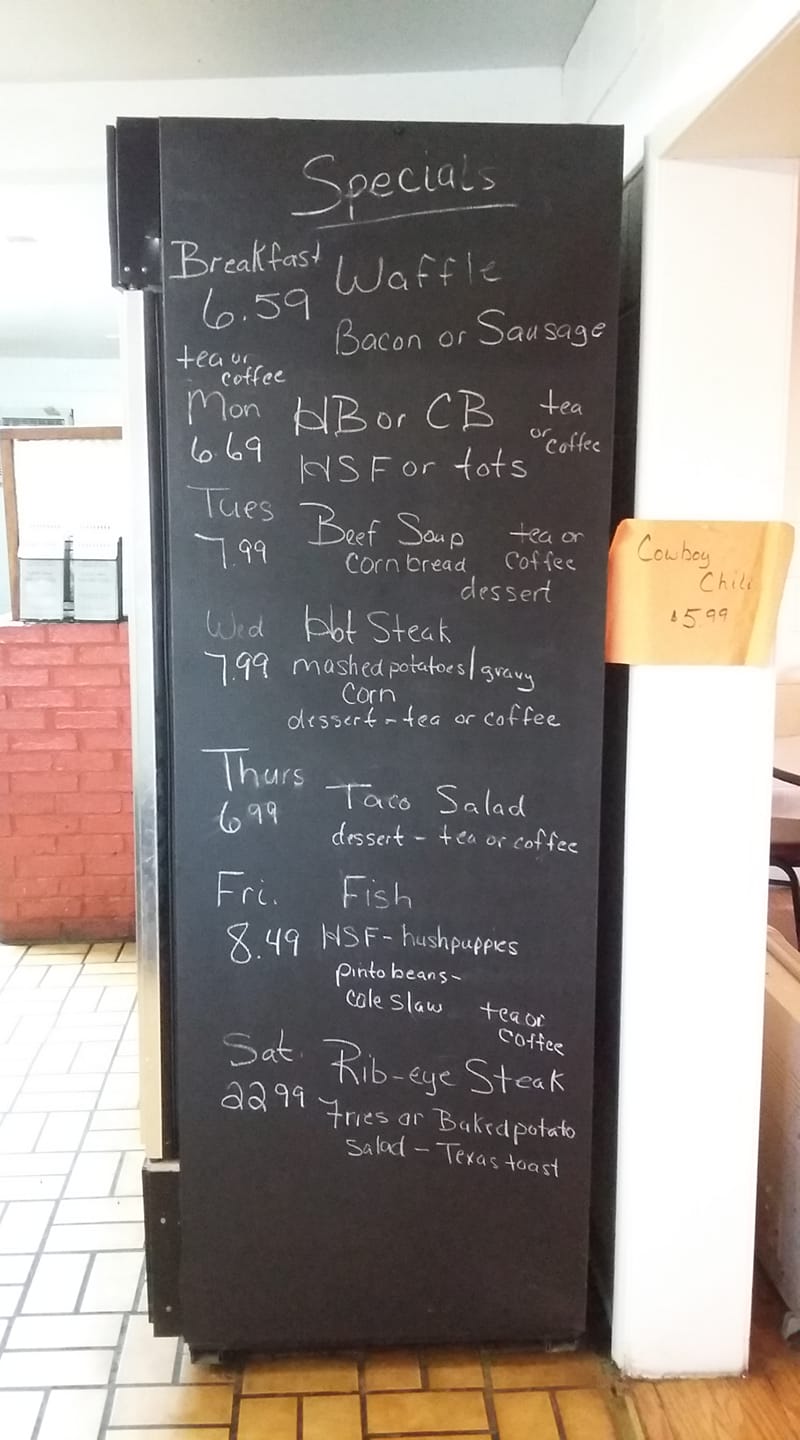 Specials
Breakfast Waffle
6.59 Bacon or Sausage
tea or
coffee
Mon HB or CB tea
or coffee
6.69 HSF or tots
Tues Beef Soup tea or
7.99 Cornbread coffee
dessert
Wed Hot Steak
7.99 mashed potatoes/gravy
Corn
dessert - tea or coffee
Thurs
6.99 Taco Salad
dessert - tea or coffee
Fri. Fish
8.49 HSF - hushpuppies
pinto beans -
cole slaw tea or
coffee
Sat. Rib-eye Steak
22.99 Fries or Baked potato
Salad - Texas toast
Cowboy
Chili
$5.99